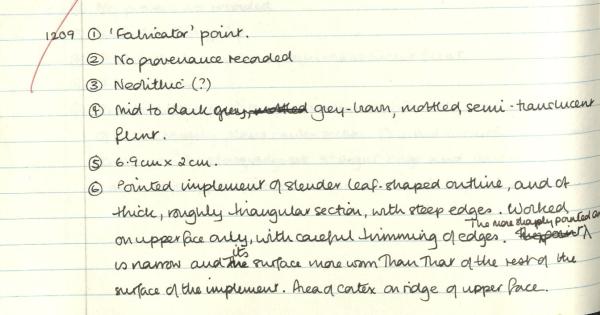 1209 ① 'Fabricator' point.
② No provenance recorded
③ Neolithic (?)
④ Mid to dark grey, mottled grey-brown, mottled, semi-translucent
flint.
⑤ 6.9cm x 2cm.
⑥ Pointed implement of slender leaf-shaped outline, and of
thick, roughly triangular section, with steep edges. Worked
on upper face only, with careful trimming of edges. The point The more sharply pointed
is narrow and the its surface more worn than that of the rest of the
surface of the implement. Area of cortex on ridge of upper face.